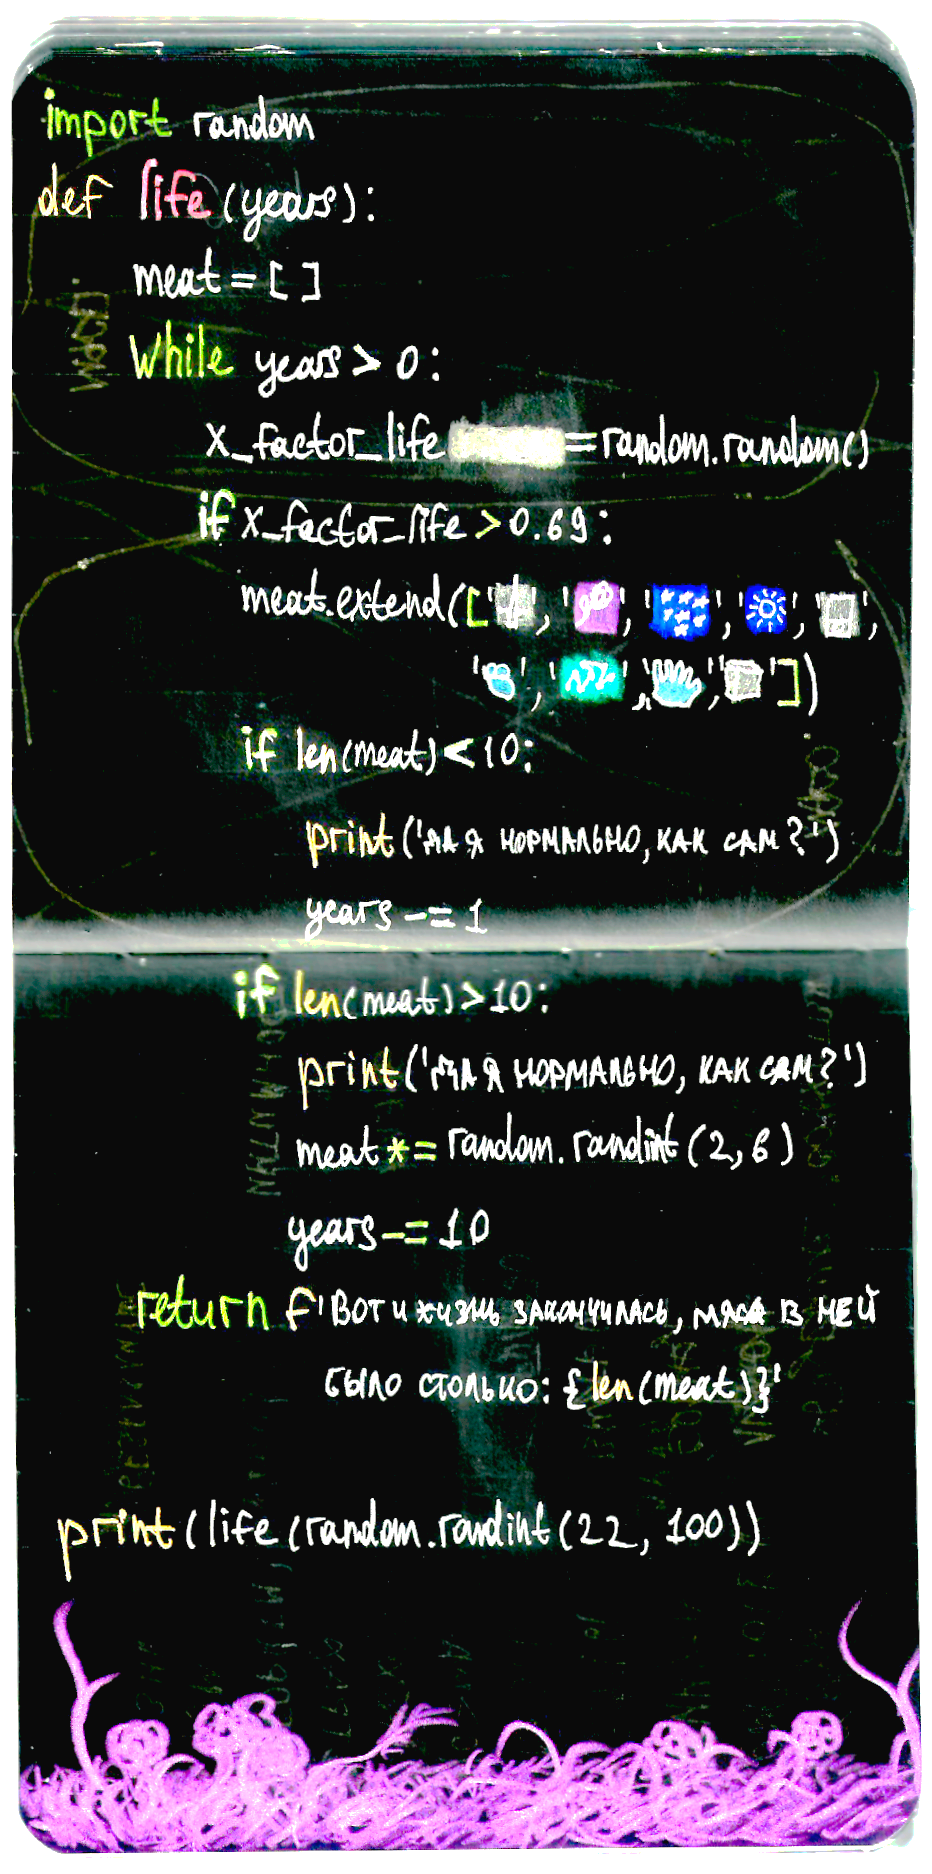 import random
def life(years):
meat = [ ]
While years > 0:
x_factor_life = random.random()
if x_factor_life > 0.69:
meat.extend(['', '', '', '', '',
'', '', '', ''])
if len(meat) < 10:
print('да я нормально, как сам?')
years -= 1
if len(meat) > 10:
print('да я нормально, как сам?')
meat *= random.randint(2, 6)
years -= 10
return f'Вот и жизнь закончилась, мяса в ней
было столько: {len(meat)}'
print(life(random.randint(22, 100))